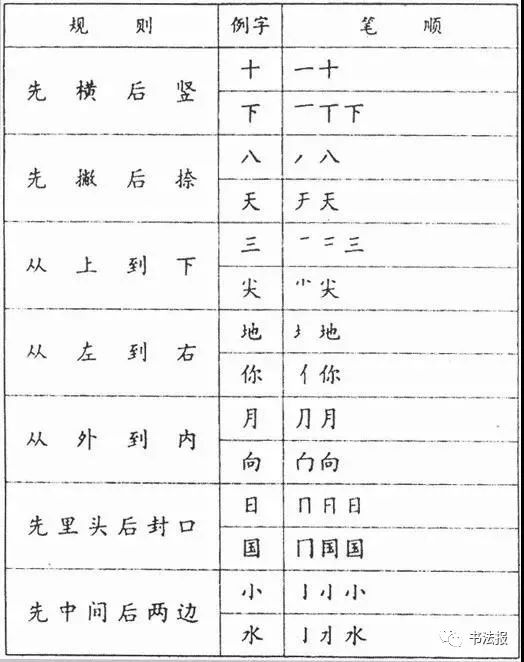 规 则 例字 笔 顺
先横后竖 十 一 十
下 一 丅 下
先撇后捺 八 丿 八
天 天
从上到下 三 一 二 三
尖 ⺌ 尖
从左到右 地 地
你 亻 你
从外到内 月 ⺆ 月
向 向
先里头后封口 日 冂 日
国 冂 国 国
先中间后两边 小 亅 小
水 亅 水
书法报